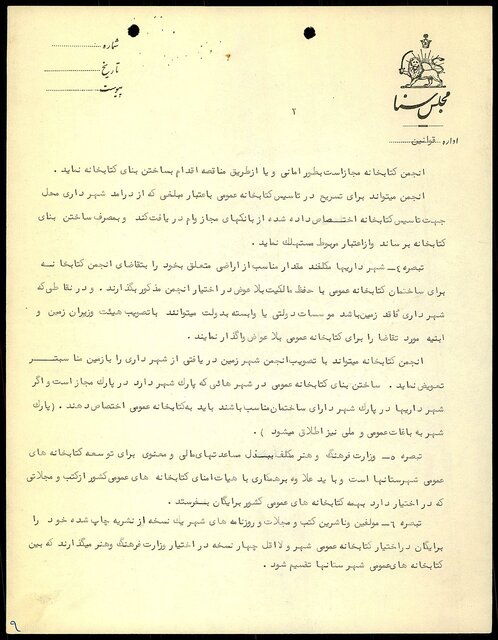 شماره
تاریخ
پیوست
مجلس سنا
اداره قوانین
۲
انجمن کتابخانه مجازاست بطور امانی و یا ازطریق مناقصه اقدام بساختن بنای کتابخانه نماید .
انجمن میتواند برای تسریع در تاسیس کتابخانه عمومی باعتبار مبلغی که از درامد شهرداری محل
جهت تاسیس کتابخانه اختصاص داده شده از بانکهای مجاز وام دریافت کند و بمصرف ساختن بنای
کتابخانه برساند و ازاعتبار مربوط مستهلک نماید .
تبصره ۴ـ شهرداریها مکلفند مقدار مناسب از اراضی متعلق بخود را بتقاضای انجمن کتابخانه
برای ساختمان کتابخانه عمومی با حفظ مالکیت بلاعوض در اختیار انجمن مذکور بگذارند . و در نقاطی که
شهرداری فاقد زمین باشد موسسات دولتی یا وابسته بدولت میتوانند باتصویب هیئت وزیران زمین و
ابنیه مورد تقاضا را برای کتابخانه عمومی بلاعوض واگذار نمایند .
انجمن کتابخانه میتواند با تصویب انجمن شهر زمین دریافتی از شهرداری را بازمین مناسبتر
تعویض نماید . ساختن بنای کتابخانه عمومی در شهرهائی که پارک شهر دارد در پارک مجاز است و اگر
شهرداریها در پارک شهر دارای ساختمان مناسب باشند باید به کتابخانه عمومی اختصاص دهند . ( پارک
شهر به باغات عمومی و ملی نیز اطلاق میشود ) .
تبصره ۵ـ وزارت فرهنگ و هنر مکلف ببذل مساعدتهای مالی و معنوی برای توسعه کتابخانه های
عمومی شهرستانها است و باید علاوه برهمکاری با هیات امنای کتابخانه های عمومی کشور ازکتب و مجلاتی
که در اختیار دارد بهمه کتابخانه های عمومی کشور برایگان بفرستد .
تبصره ۶ـ مولفین وناشرین کتب و مجلات و روزنامه های شهر یک نسخه از نشریه چاپ شده خود را
برایگان دراختیار کتابخانه عمومی شهر و لااقل چهار نسخه در اختیار وزارت فرهنگ وهنر میگذارند که بین
کتابخانه های عمومی شهرستانها تقسیم شود .
۹